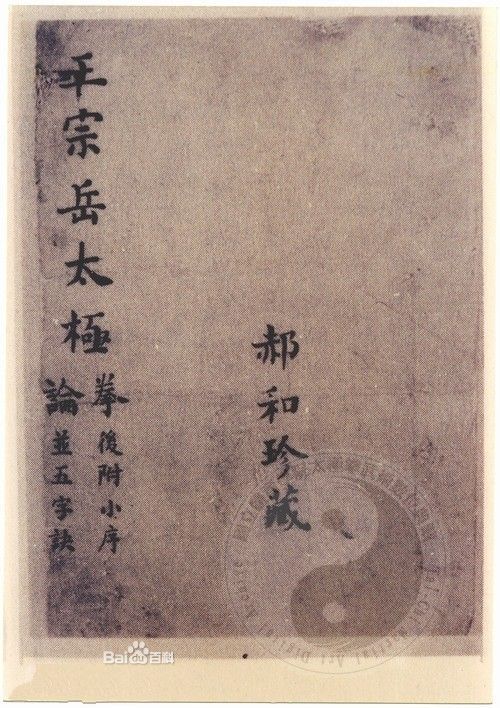 王宗岳太極
拳後附小序
論並五字訣
郝和珍藏
Bai百科